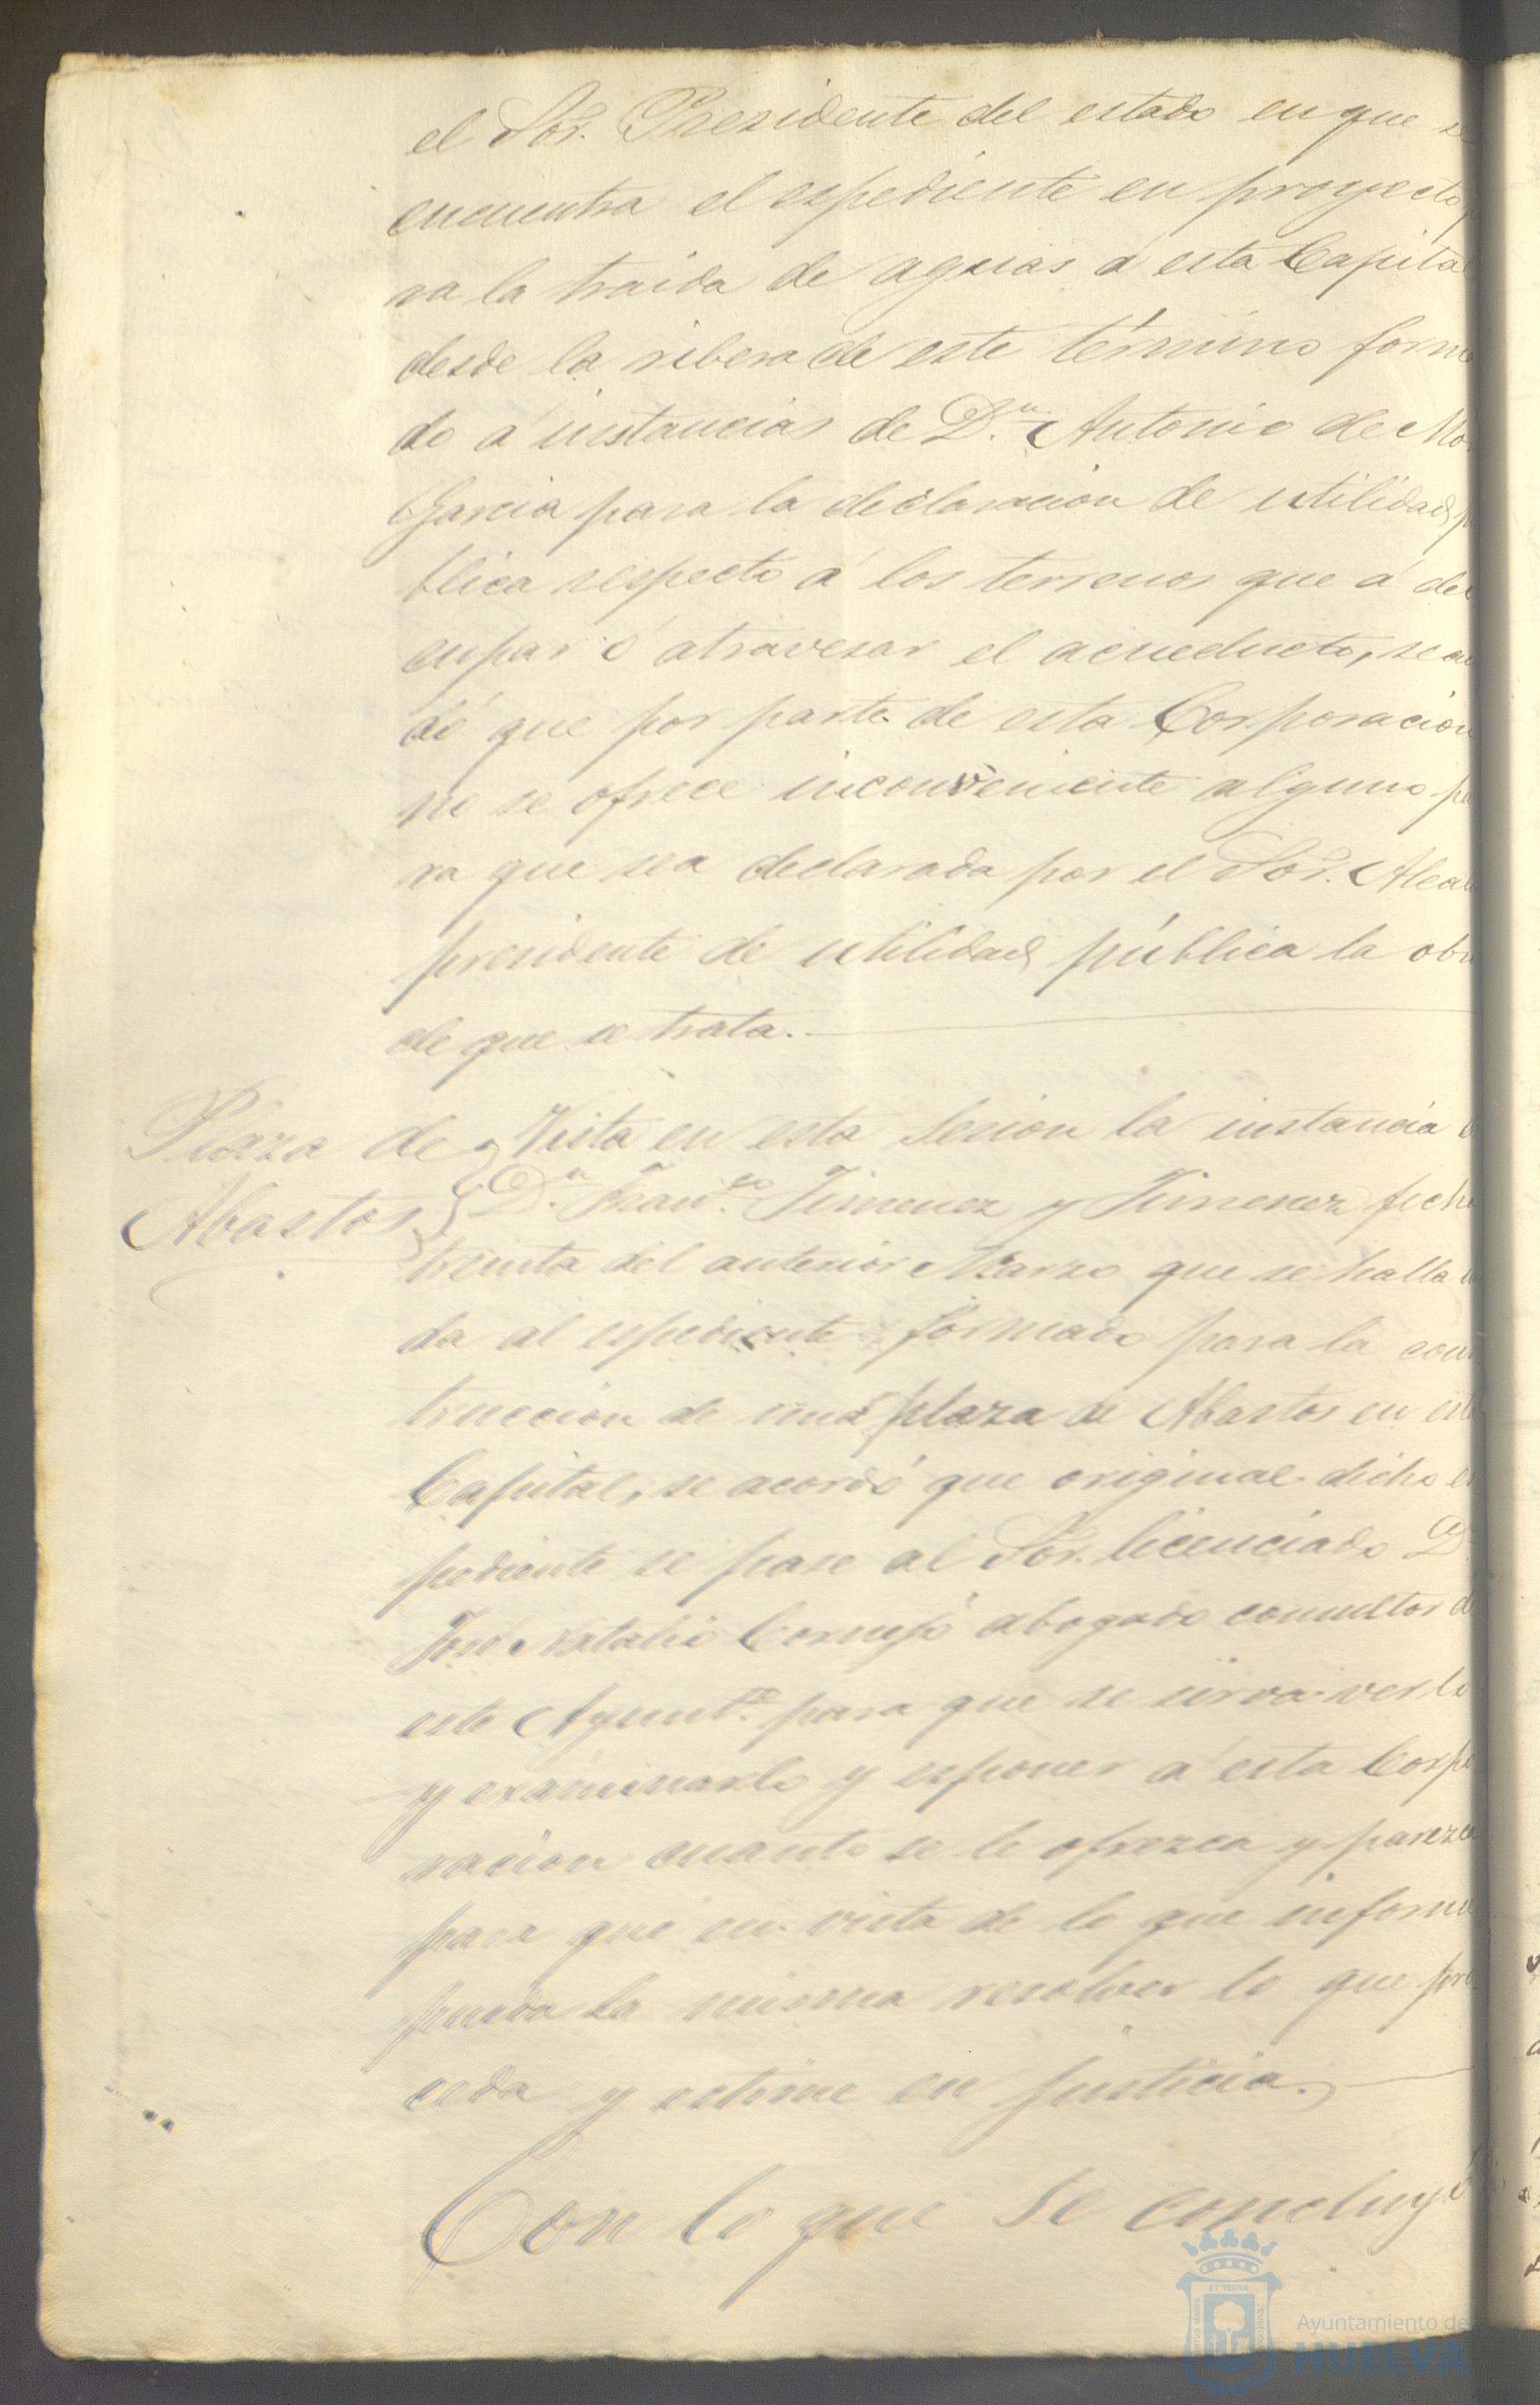 el Sor. Presidente del estado en que se
encuentra el espediente en proyecto p
ra la traida de aguas á esta Capital
desde la ribera de este término forma
do á instancias de Dn. Antonio de Mo
Garcia para la declaracion de utilidad pu
blica respecto á los terrenos que á de
cupar ó atravesar el acueducto, se
dó que por parte de esta Corporacion
no se ofrece inconveniente alguno pa
ra que sea declarada por el Sor. Alcal
presidente de utilidad pública la obra
de que se trata.
Plaza de
Abastos
Vista en esta Sesion la instancia
Dn. Franco. Jimenez y Jimenez fecha
treinta del anterior Marzo que se halla u
da al espediente formado para la cons
truccion de una plaza de Abastos en esta
Capital, se acordó que original dicho es
pediente se pase al Sor. licenciado D.
José Natalio Cornejo abogado consultor d
este Ayuntº. para que se sirva verlo
y examinarlo y esponer á esta Corpo
racion cuanto se le ofrezca y parezca
para que en vista de lo que informe
pueda la misma resolver lo que pro
ceda y estime en justicia.
Con lo que se concluyó
Ayuntamiento de
HUELVA